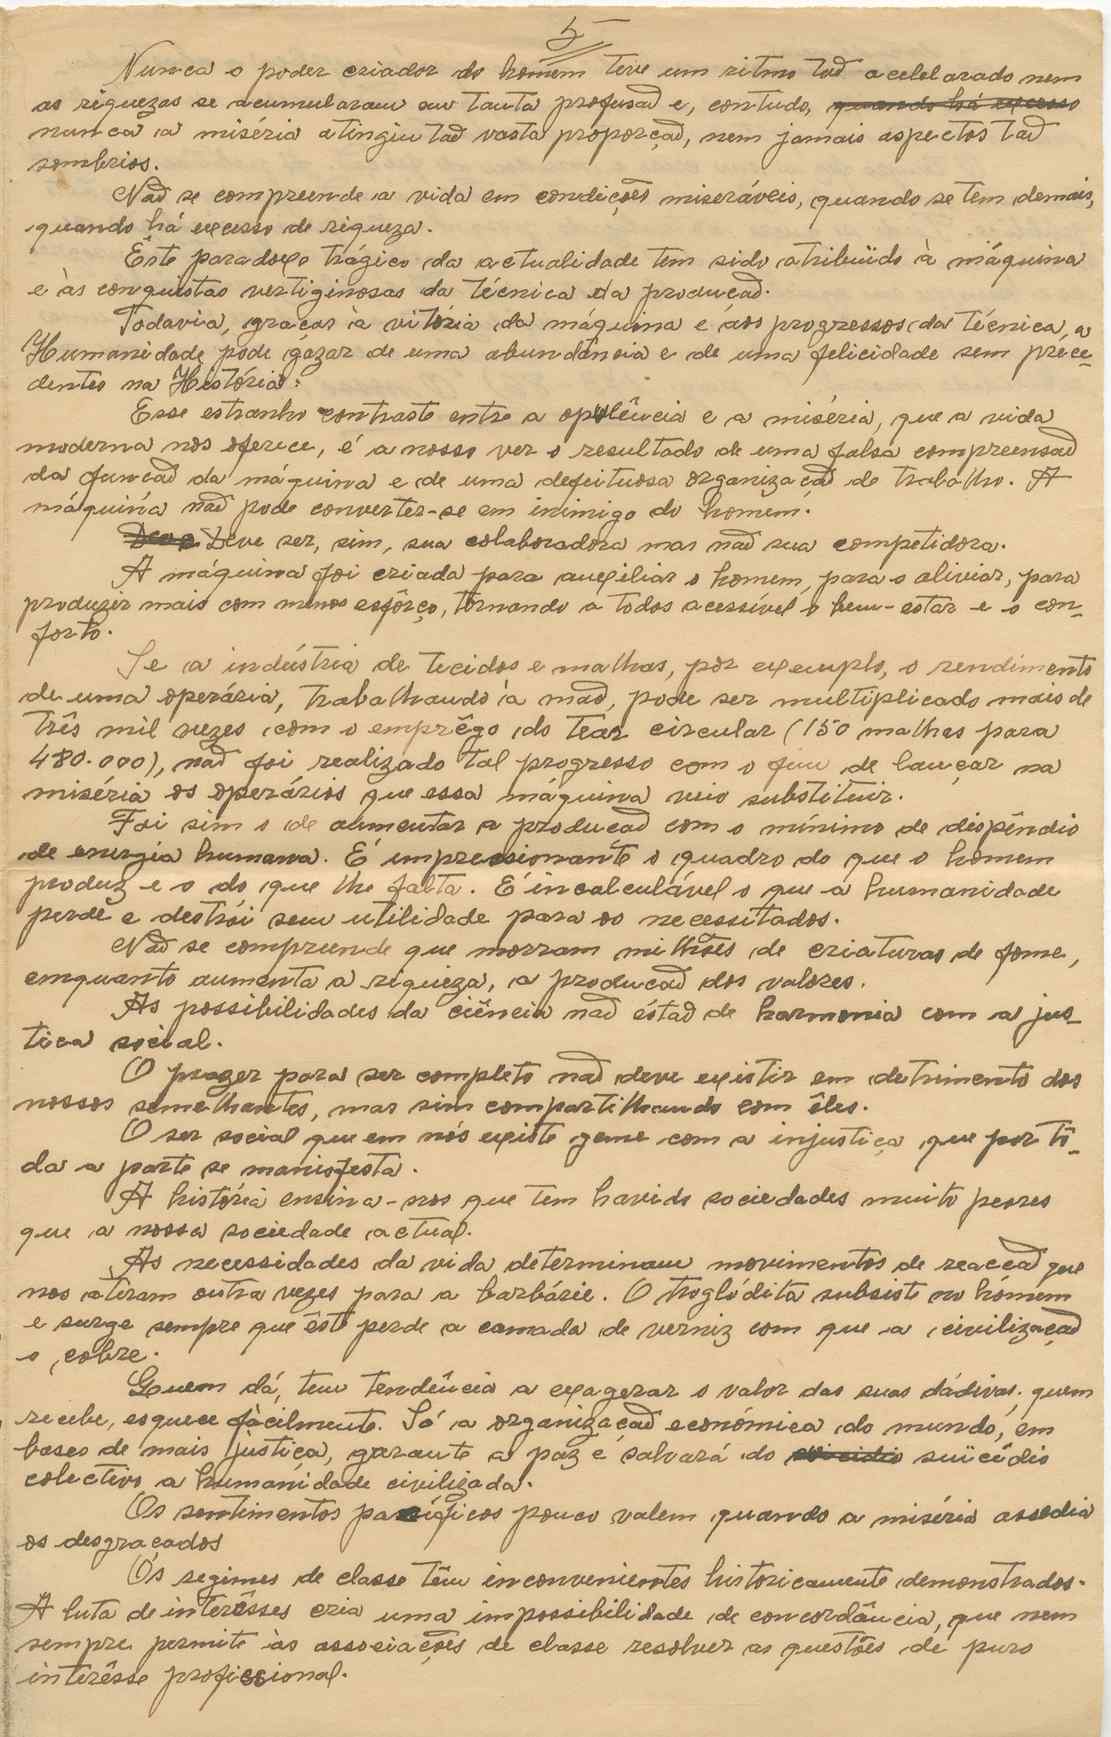 5
Nunca o poder criador do homem teve um ritmo tão acelelarado nem
as riquezas se acumularam em tanta profusão e, contudo, quando há excesso
nunca a miséria atingiu tão vasta proporção, nem jamais aspectos tão
sombrios.
Não se compreende a vida em condições miseráveis, quando se tem demais,
quando há excesso de riqueza.
Êste paradoxo trágico da actualidade tem sido atribuïdo à máquina
e às conquistas vertiginosas da técnica da produção.
Todavia, graças à vitória da máquina e aos progressos da técnica, a
Humanidade pode gozar de uma abundância e de uma felicidade sem prece-
dentes na História.
Esse estranho contraste entre a opulência e a miséria, que a vida
moderna nos oferece, é a nosso ver o resultado de uma falsa compreensão
da função da máquina e de uma defeituosa organização de trabalho. A
máquina não pode converter-se em inimigo do homem.
Deve Deve ser, sim, sua colaboradora mas não sua competidora.
A máquina foi criada para auxiliar o homem, para o aliviar, para
produzir mais com menos esfôrço, tornando a todos acessível o bem-estar e o con-
forto.
Se a indústria de tecidos e malhas, por exemplo, o rendimento
de uma operária, trabalhando à mão, pode ser multiplicado mais de
três mil vezes com o emprêgo do tear circular (150 malhas para
480.000), não foi realizado tal progresso com o fim de lançar na
miséria os operários que essa máquina veio substituir.
Foi sim o de aumentar a produção com o mínimo de dispêndio
de energia humana. É impressionante o quadro do que o homem
produz e o do que lhe falta. É incalculável o que a humanidade
perde e destrói sem utilidade para os necessitados.
Não se compreende que morram milhões de criaturas de fome,
emquanto aumenta a riqueza, a produção dos valores.
As possibilidades da ciência não estão de harmonia com a jus-
tiça social.
O prazer para ser completo não deve existir em detrimento dos
nossos semelhantes, mas sim compartilhando com êles.
O ser social que em nós existe geme com a injustiça que por tô-
da a parte se manifesta.
A história ensina-nos que tem havido sociedades muito peores
que a nossa sociedade actual.
As necessidades da vida determinam movimentos de reacção que
nos atiram outra vezes para a barbárie. O troglódita subsiste no hómem
e surge sempre que êste perde a camada de verniz com que a civilização
o cobre.
Quem dá, tem tendência a exagerar o valor das suas dádivas; quem
recebe, esquece fàcilmente. Só a organização económica do mundo, em
bases de mais justiça, garante a paz e salvará do suicidio suïcídio
colectivo a humanidade civilizada.
Os sentimentos pacíficos pouco valem quando a miséria assedia
os desgraçados
Os regimes de classe têm inconvenientes historicamente demonstrados.
A luta de interêsses cria uma impossibilidade de concordância, que nem
sempre permite às associações de classe resolver as questões de puro
interêsse profissional.